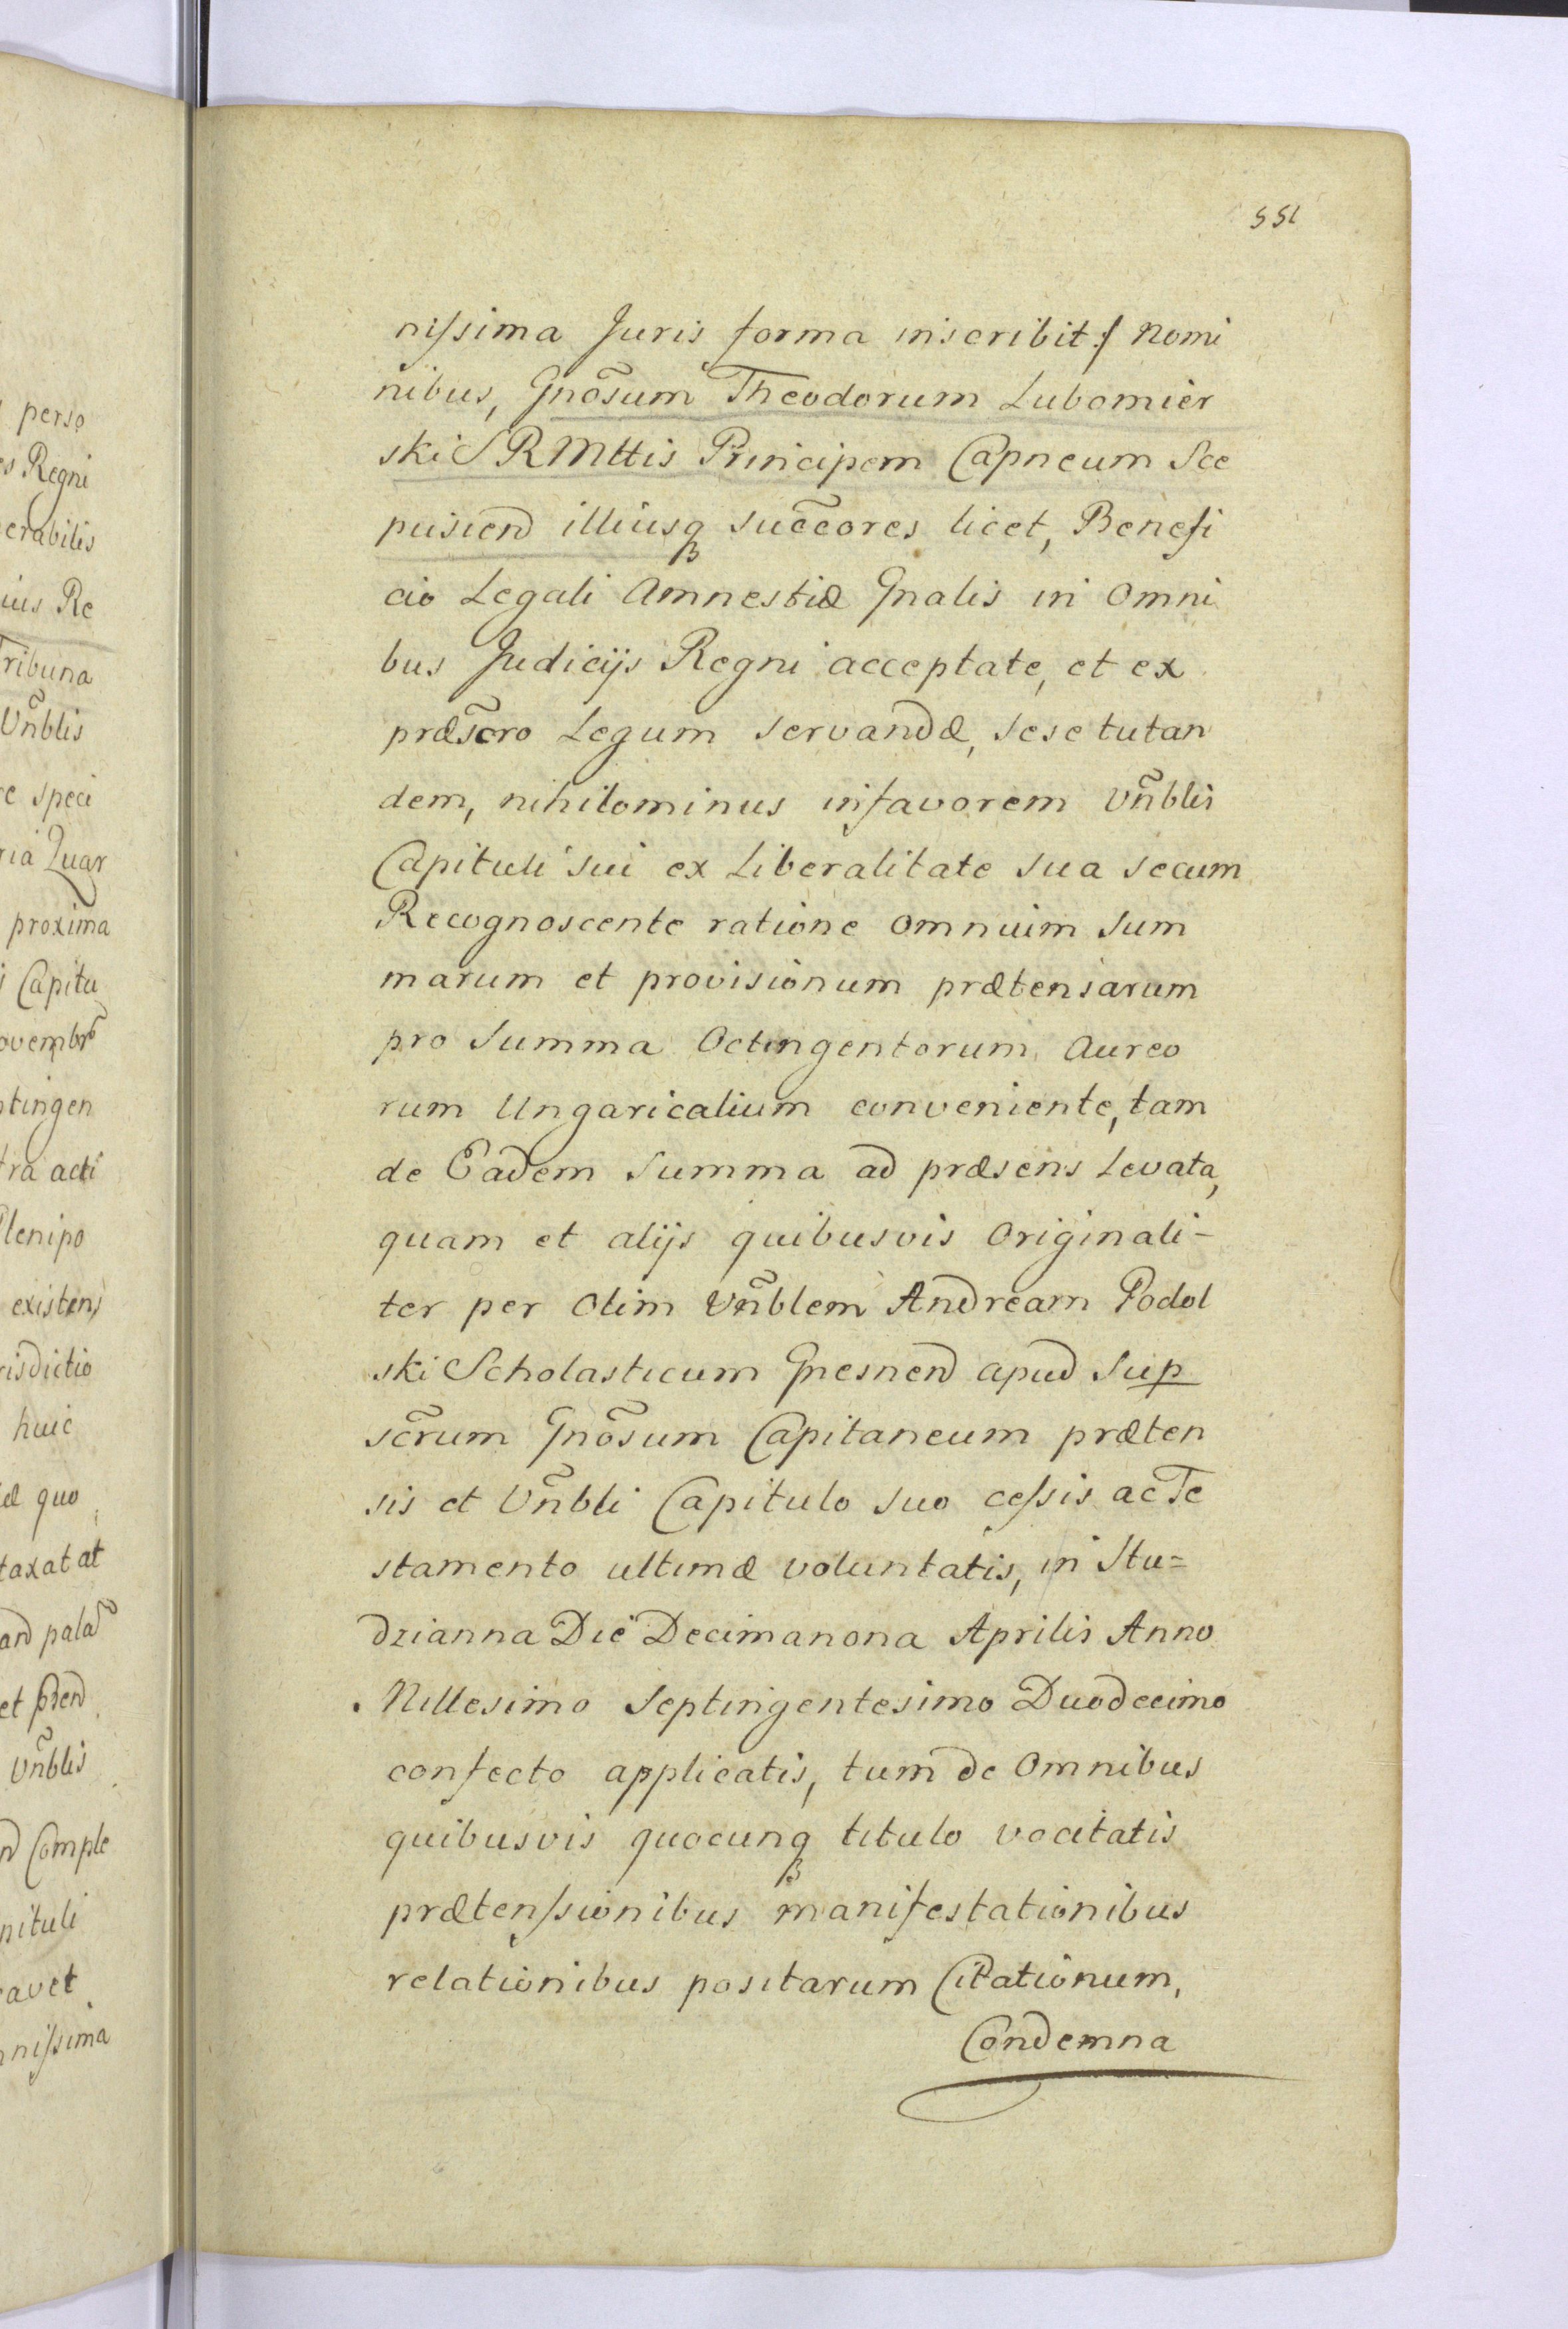 551
perso
es Regni
erabilis
ius Re
Tribuna
Vñblis
re speci
ria Quar
proxima
i Capitu
ovembr
ptingen
tra acti
Plenipo
existens
risdictio
huic
æ quo
taxat at
and palã
et pñend
Vñblis
nd Comple
pituli
avet
nissima
nissima Juris forma inscribit ∫ nomi
nibus, Gnõsum Theodorum Lubomier
ski S R Mttis Principem Capneum Sce
pusiend illiusq succ̃ores licet, Benefi
cio Legali Amnestiæ Gnalis in Omni
bus Judicijs Regni acceptate, et ex
præscr̃o Legum servandæ, sese tutan
dem, nihilominus infavorem Vñblis
Capituli sui ex Liberalitate sua secum
Recognoscente ratione omnium sum
marum et provisionum prætensarum
pro Summa Octingentorum Aureo
rum Ungaricalium conveniente, tam
de Eadem Summa ad præsens levata,
quam et alijs quibusvis Originali-
ter per Olim Vñblem Andream Podol
ski Scholasticum Gnesnend apud Sup
scr̃um Gnõsum Capitaneum præten
sis et Vñbli Capitulo suo cessis ac Te
stamento ultimæ voluntatis, in Stu=
dzianna Die Decimanona Aprilis Anno
Millesimo Septingentesimo Duodecimo
confecto applicatis, tum de Omnibus
quibusvis quocunq titulo vocitatis
prætenssionibus manifestationibus
relationibus positarum Citationum,
Condemna